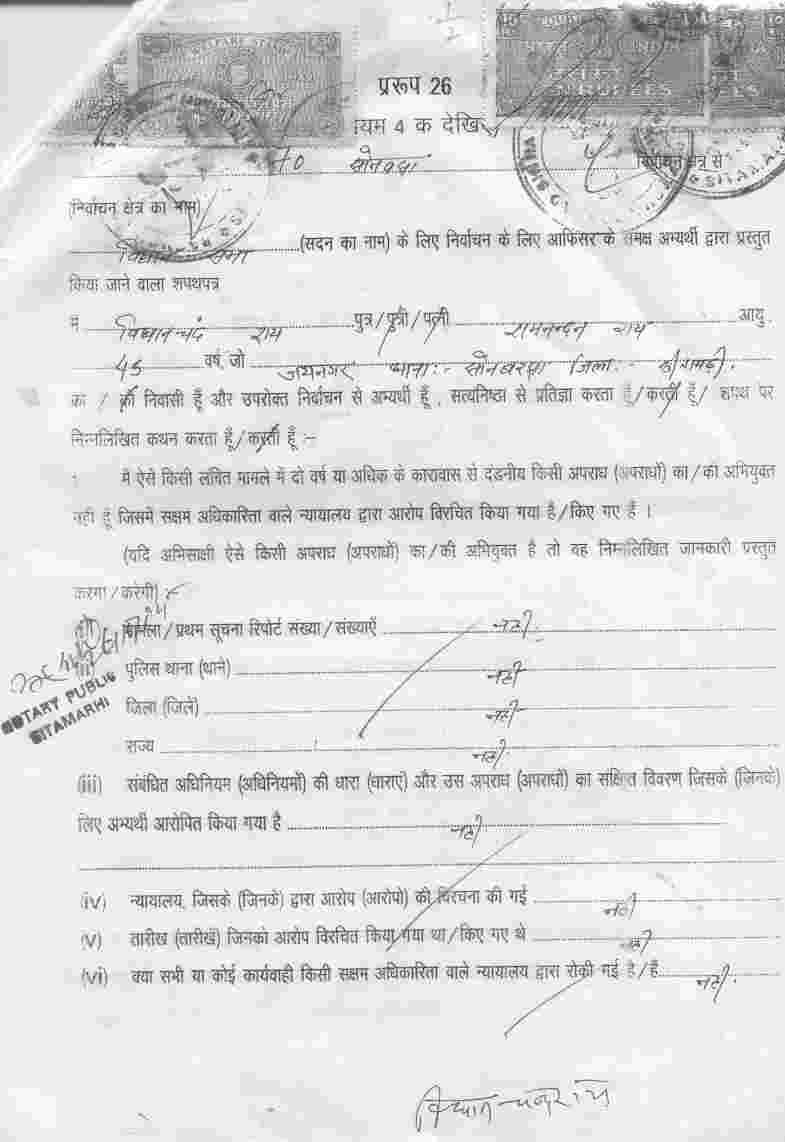 1/2
WELFARE STAMP
भारत INDIA
RUPEES
प्ररूप 26
यम 4 क देखि
सोनवर्षा निर्वाचन क्षेत्र से
(निर्वाचन क्षेत्र का नाम)
विधान सभा (सदन का नाम) के लिए निर्वाचन के लिए आफिसर के समक्ष अभ्यर्थी द्वारा प्रस्तुत
किया जाने वाला शपथपत्र
मैं विधानचंद्र राय पुत्र/पुत्री/पत्नी रामनन्दन राय आयु
45 वर्ष, जो जयनगर थाना:- सोनबरसा जिला:-
का / की निवासी हूँ और उपरोक्त निर्वाचन से अभ्यर्थी हूँ, सत्यनिष्ठा से प्रतिज्ञा करता हूँ/करती हूँ/ शपथ पर
निम्नलिखित कथन करता हूँ/करती हूँ :-
मैं ऐसे किसी लंबित मामले में दो वर्ष या अधिक के कारावास से दंडनीय किसी अपराध (अपराधों) का/की अभियुक्त
नहीं हूँ जिसमें सक्षम अधिकारिता वाले न्यायालय द्वारा आरोप विरचित किया गया है/किए गए हैं ।
(यदि अभिसाक्षी ऐसे किसी अपराध (अपराधों) का/की अभियुक्त है तो वह निम्नलिखित जानकारी प्रस्तुत
करेगा/करेगी)
मामला/प्रथम सूचना रिपोर्ट संख्या/संख्याएँ नहीं
पुलिस थाना (थाने) नहीं
NOTARY PUBLIC
SITAMARHI
जिला (जिले) नहीं
राज्य नहीं
(iii) संबंधित अधिनियम (अधिनियमों) की धारा (धाराएं) और उस अपराध (अपराधों) का संक्षिप्त विवरण जिसके (जिनके)
लिए अभ्यर्थी आरोपित किया गया है नहीं
(iv) न्यायालय, जिसके (जिनके) द्वारा आरोप (आरोपों) की विरचना की गई नहीं
(v) तारीख (तारीखें) जिनको आरोप विरचित किया गया था/किए गए थे नहीं
(vi) क्या सभी या कोई कार्यवाही किसी सक्षम अधिकारिता वाले न्यायालय द्वारा रोकी गई है/हैं नहीं.
विधानचन्द्र राय